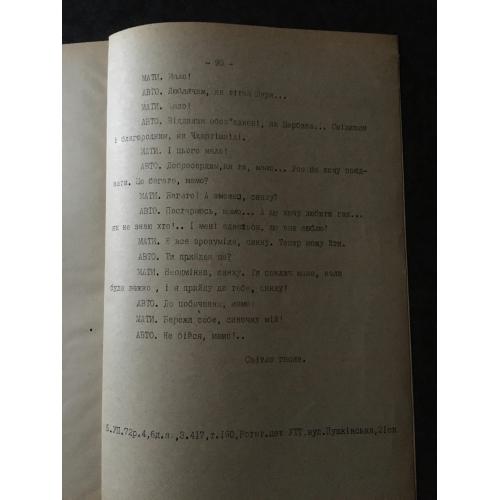 - 90 -
МАТИ. Мало!
АВТО. Люблячим, як
МАТИ. Мало!
АВТО. Відданим обов"язкові, як Щербова... Сміливим
і благородним, як
МАТИ. І цього мало!
АВТО. Добросердим, як ти, мамо... Усе це хочу
вати. Це багато, мамо?
МАТИ. Багато! А зможеш, синку?
АВТО. Постараюсь, мамо... А ще хочу любити так...
як не знаю хто!.. І мені здається, що вже люблю!
МАТИ. Я все зрозуміла, синку. Тепер можу йти.
АВТО. Ти прийдеш ще?
МАТИ. Неодмінно, синку. Ти поклич мене, коли
буде важко , і я прийду до тебе, синку!
АВТО. До побачення, мамо!
МАТИ. Бережи себе, синочку мій!
АВТО. Не бійся, мамо!..
Світло гасне.
5.УП.72р.4,6д.а.,З.417,т.160,Ротат.цех УТТ.вул.Пушкінська,21ск